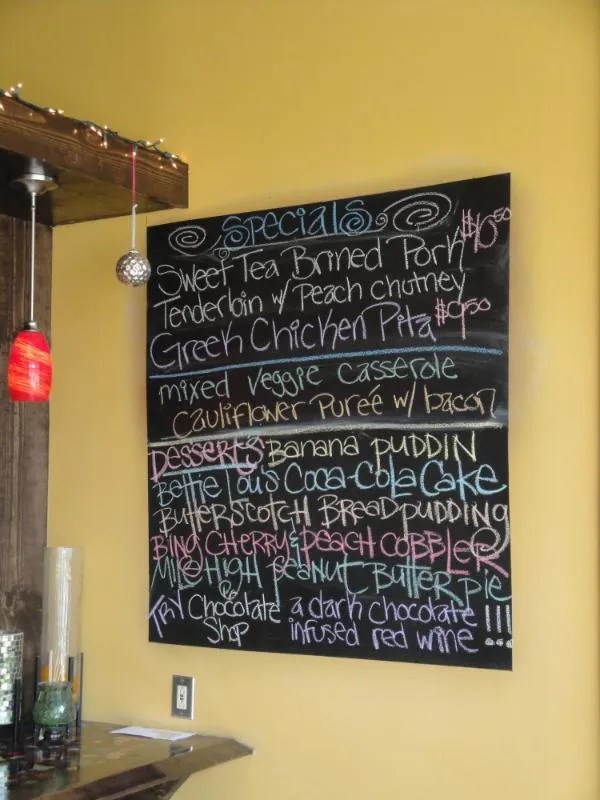 Specials
Sweet Tea Brined Pork $10.50
Tenderloin w/ Peach chutney
Greek Chicken Pita $9.50
mixed veggie casserole
Cauliflower Pureé w/ bacon
Desserts Banana PUDDIN
Bettie Lou's Coca-Cola Cake
Butterscotch Bread pudding
Bing Cherry & Peach Cobbler
Mile High Peanut Butter pie
TRY Chocolate Shop a dark chocolate infused red wine !!!